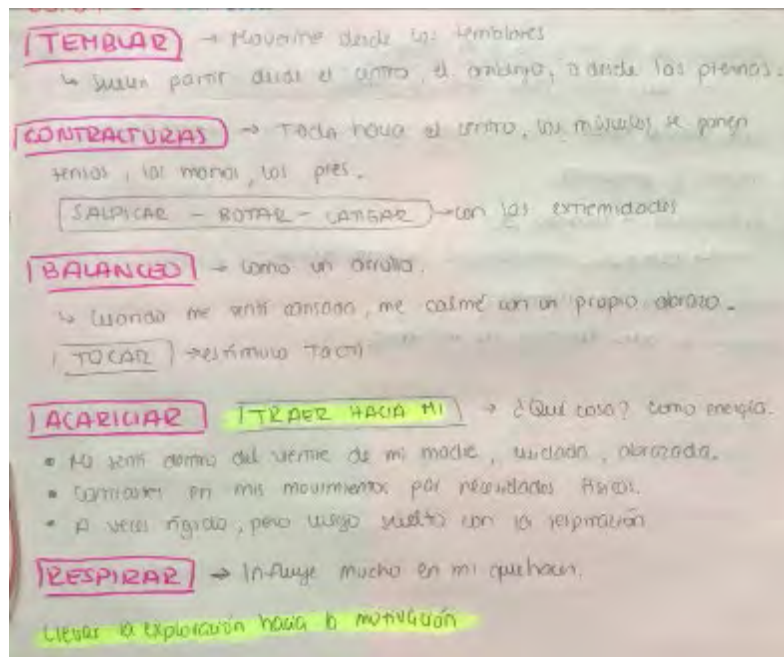 TEMBLAR → Moverme desde los temblores
↳ suelen partir desde el centro, el ombligo, o desde las piernas.
CONTRACTURAS → Toda hacia el centro, los músculos se ponen
tensos, las manos, los pies.
SALPICAR - BOTAR - LANZAR → con las extremidades
BALANCEO → como un arrullo.
↳ cuando me sentí cansada, me calmé con un propio abrazo.
TOCAR → estímulo tactil
ACARICIAR TRAER HACIA MI → ¿Qué cosa? como energía.
• Me sentí dentro del vientre de mi madre, cuidada, abrazada.
• en mis movimientos por necesidades físicas.
• A veces rígido, pero luego suelto con la respiración
RESPIRAR → Influye mucho en mi quehacer.
Llevar la exploración hacia la motivación